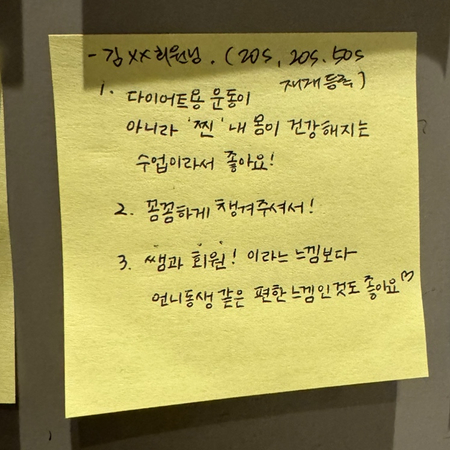 - 김XX 회원님. (20s, 20s, 50s
재재등록)
1. 다이어트용 운동이
아니라 '찐' 내 몸이 건강해지는
수업이라서 좋아요!
2. 꼼꼼하게 챙겨주셔서!
3. 쌤과 회원! 이라느 느낌보다
언니동생 같은 편한 느낌인것도 좋아요♡